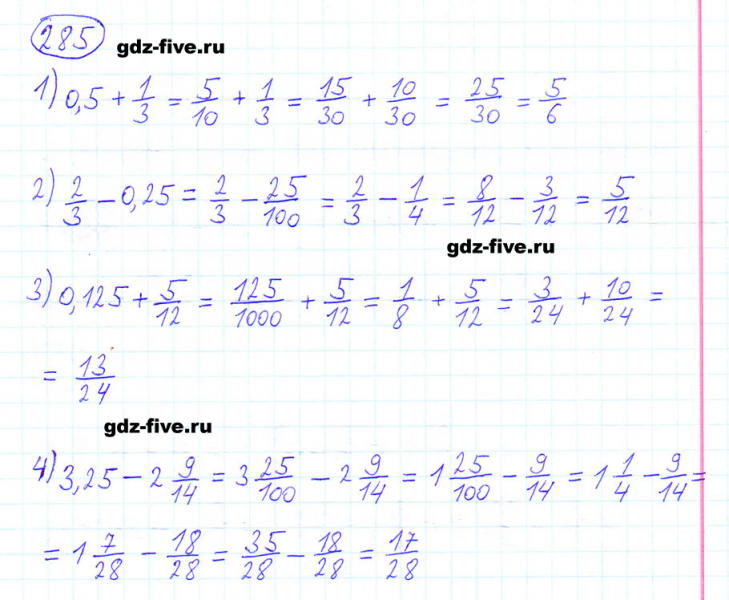 285 gdz-five.ru
1) 0,5 + 1/3 = 5/10 + 1/3 = 15/30 + 10/30 = 25/30 = 5/6
2) 2/3 - 0,25 = 2/3 - 25/100 = 2/3 - 1/4 = 8/12 - 3/12 = 5/12
gdz-five.ru
3) 0,125 + 5/12 = 125/1000 + 5/12 = 1/8 + 5/12 = 3/24 + 10/24 =
= 13/24
gdz-five.ru
4) 3,25 - 2 9/14 = 3 25/100 - 2 9/14 = 1 25/100 - 9/14 = 1 1/4 - 9/14 =
= 1 7/28 - 18/28 = 35/28 - 18/28 = 17/28